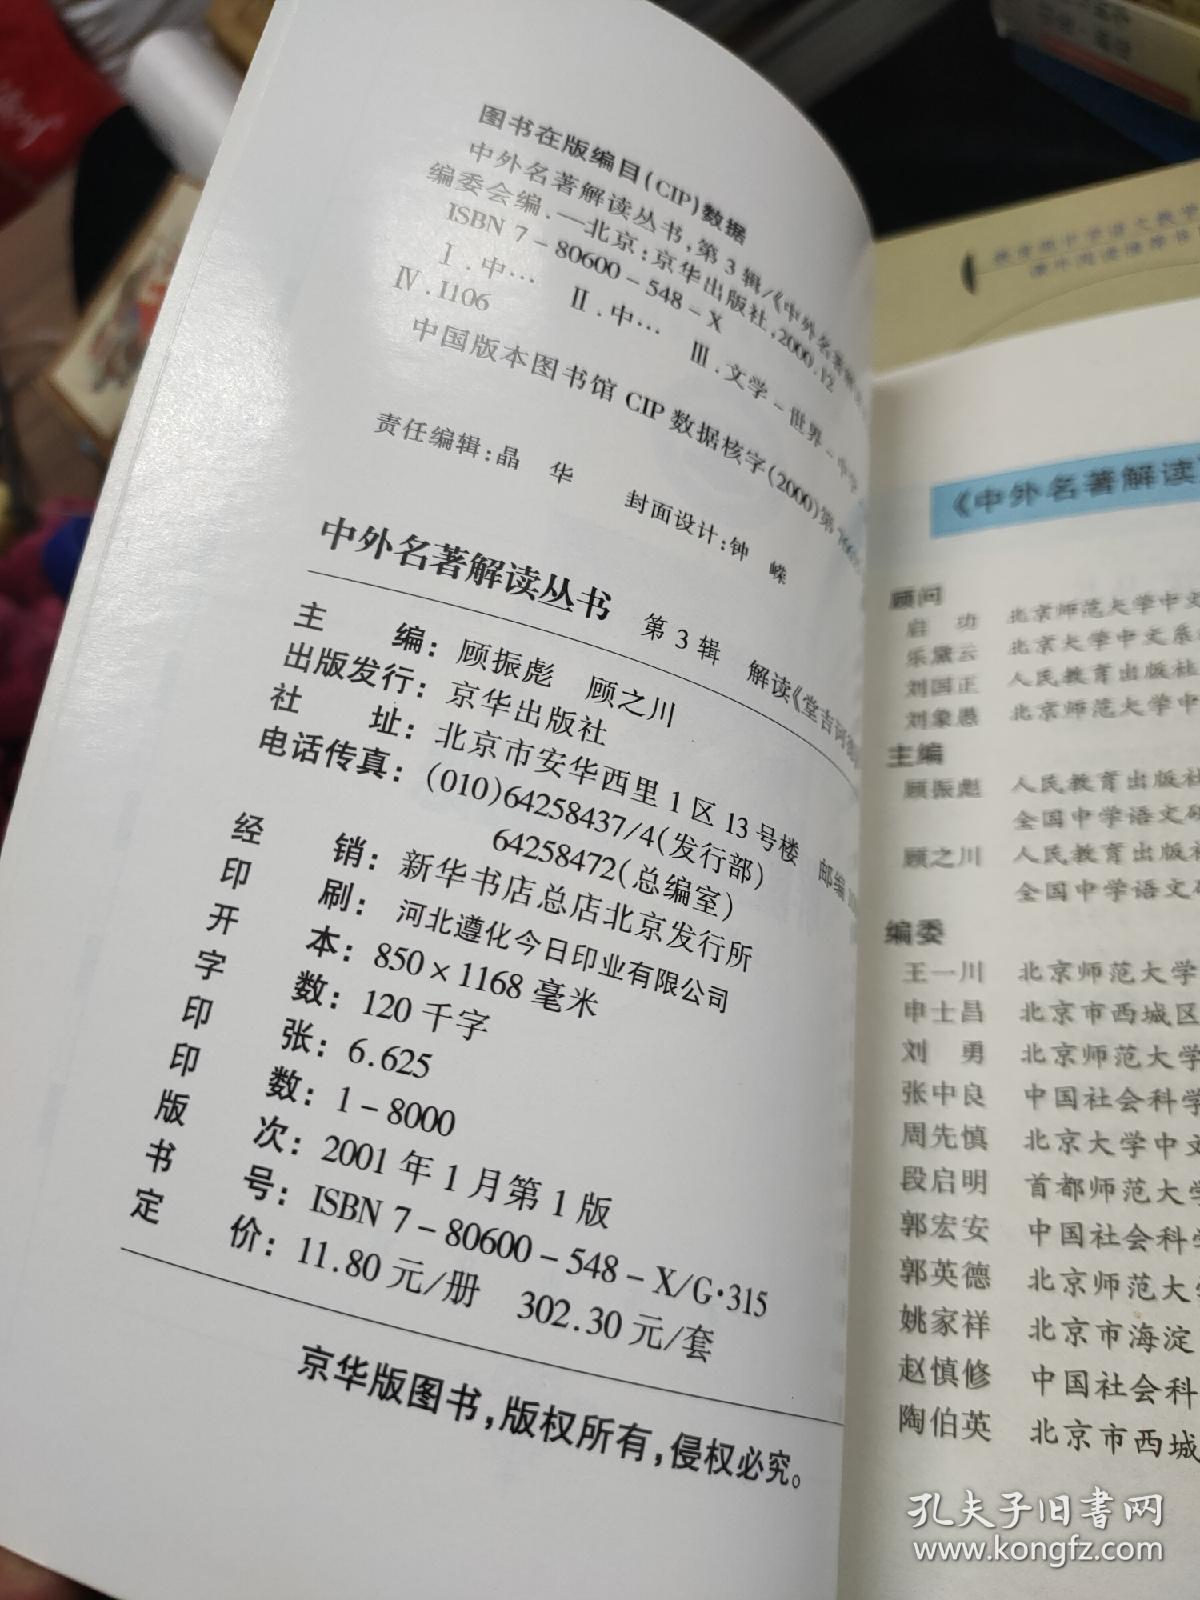 图书在版编目(CIP)数据
中外名著解读丛书,第3辑/《中外名著解
编委会编.—北京:京华出版社,2000.12
ISBN 7-80600-548-X
Ⅰ.中… Ⅱ.中… Ⅲ.文学-世界-中学
Ⅳ.I106
中国版本图书馆 CIP 数据核字(2000)第
责任编辑:晶 华 封面设计:钟 嵘
中外名著解读丛书 第3辑 解读《堂吉诃德
主 编:顾振彪 顾之川
出版发行:京华出版社
社 址:北京市安华西里1区13号楼 邮编
电话传真:(010)64258437/4(发行部)
64258472(总编室)
经 销:新华书店总店北京发行所
印 刷:河北遵化今日印业有限公司
开 本:850×1168毫米
字 数:120千字
印 张:6.625
印 数:1-8000
版 次:2001年1月第1版
书 号:ISBN 7-80600-548-X/G·315
定 价:11.80元/册 302.30元/套
京华版图书,版权所有,侵权必究。
《中外名著解读
顾问
启 功 北京师范大学中文
乐黛云 北京大学中文系
刘国正 人民教育出版社
刘象愚 北京师范大学中
主编
顾振彪 人民教育出版社
全国中学语文研
顾之川 人民教育出版社
全国中学语文研
编委
王一川 北京师范大学
申士昌 北京市西城区
刘 勇 北京师范大学
张中良 中国社会科学
周先慎 北京大学中文
段启明 首都师范大学
郭宏安 中国社会科学
郭英德 北京师范大
姚家祥 北京市海淀
赵慎修 中国社会科
陶伯英 北京市西城
孔夫子旧书网
www.kongfz.com